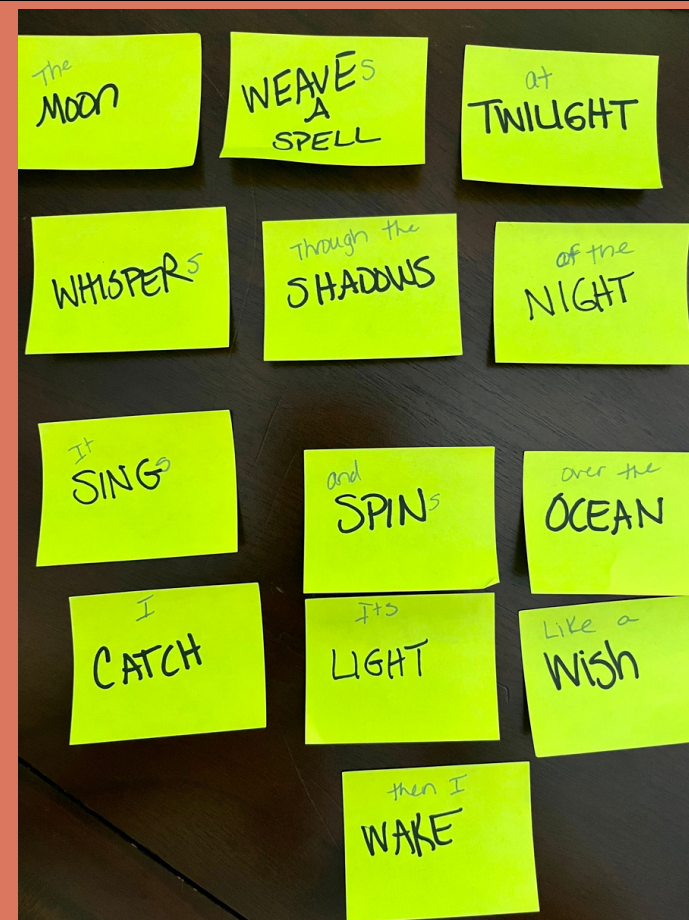 The
Moon
WEAVEs
A
SPELL
at
TWILIGHT
WHISPERs
Through the
SHADOWS
of the
NIGHT
It
SINGs
and
SPINs
over the
OCEAN
I
CATCH
Its
LIGHT
Like a
Wish
then I
WAKE